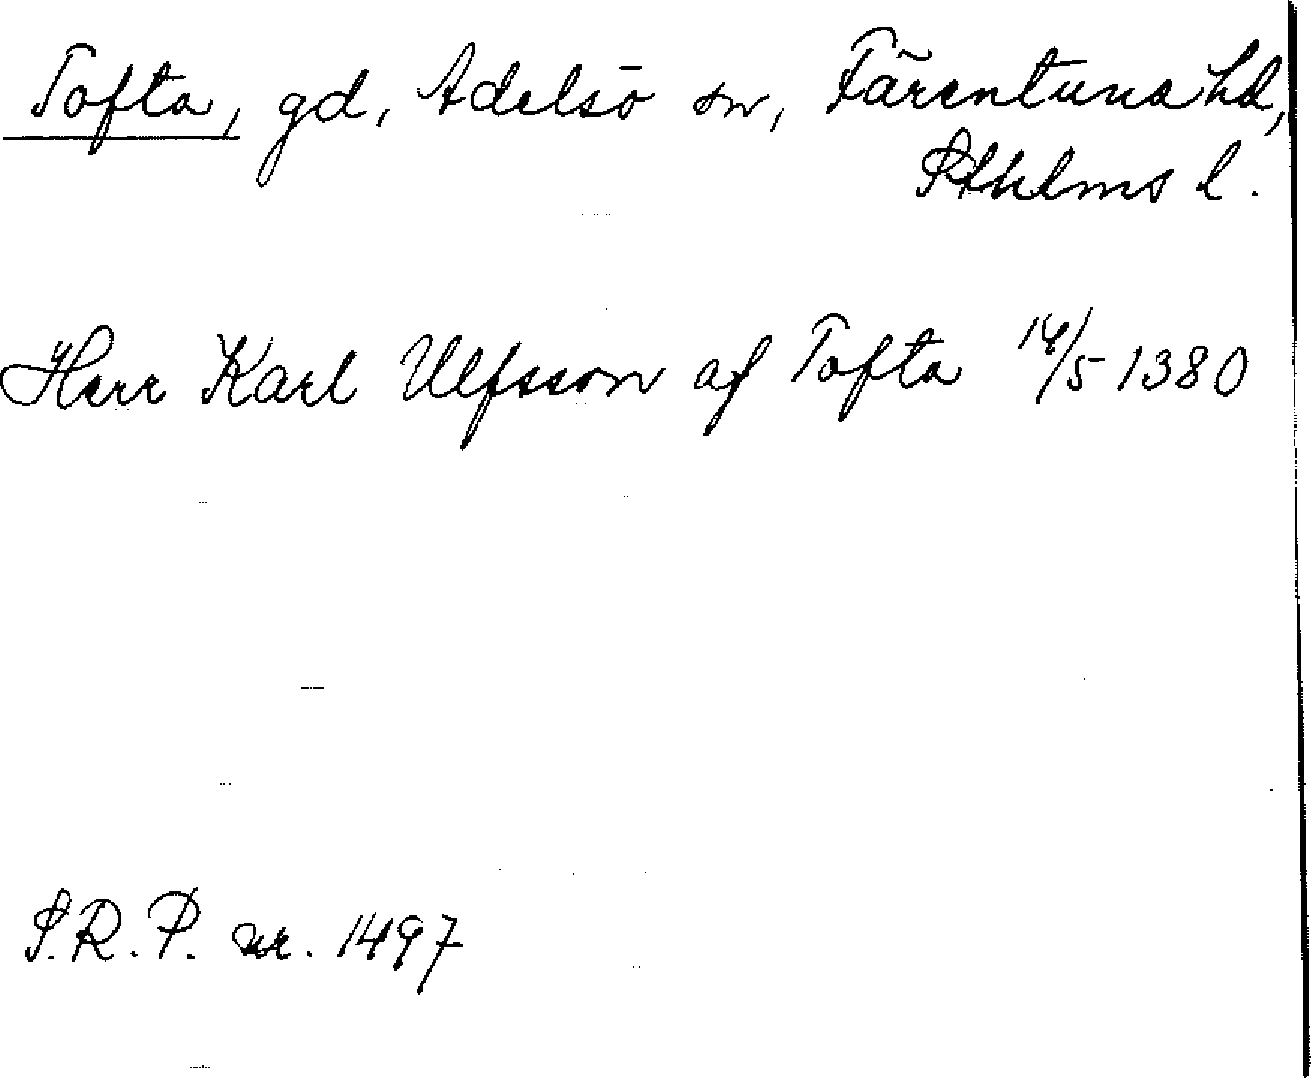 Tofta, gd, Adelsö sn, Färentuna hd,
Sthlms l.
Herr Karl Ulfsson af Tofta 14/5 1380
S.R.P. nr. 1497